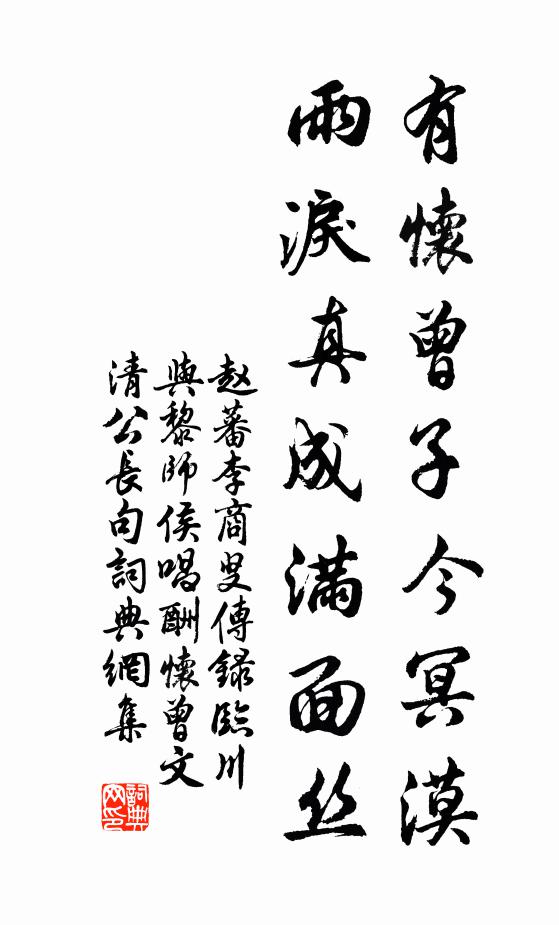 有懷曾子今冥漠
雨淚真成滿面丝
赵蕃李商叟傳錄臨川
與黎師侯唱酬懷曾文
清公長句詞典網集
詞典网印